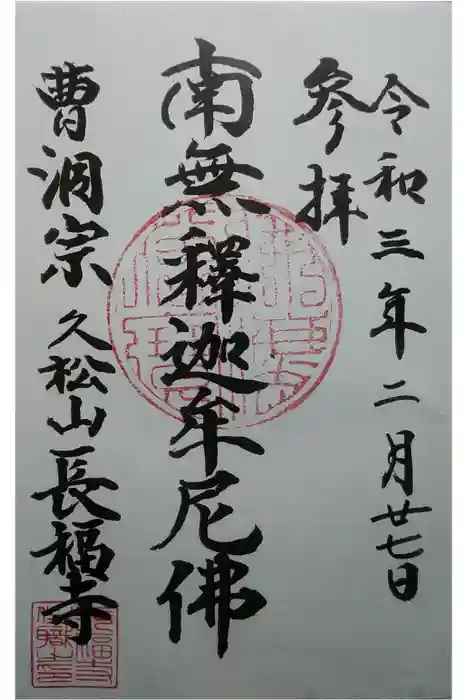 令和三年二月廿七日
参拝
南無釋迦牟尼佛
曹洞宗 久松山 長福寺